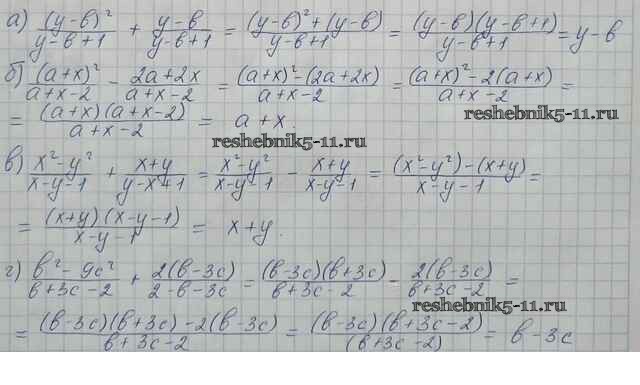 а) (y-в)²/(y-в+1) + (y-в)/(y-в+1) = ((y-в)²+(y-в))/(y-в+1) = ((y-в)(y-в+1))/(y-в+1) = y-в
б) (a+x)²/(a+x-2) - (2a+2x)/(a+x-2) = ((a+x)²-(2a+2x))/(a+x-2) = ((a+x)²-2(a+x))/(a+x-2) =
= ((a+x)(a+x-2))/(a+x-2) = a+x.
reshebnik5-11.ru
в) (x²-y²)/(x-y-1) + (x+y)/(y-x+1) = (x²-y²)/(x-y-1) - (x+y)/(x-y-1) = ((x²-y²)-(x+y))/(x-y-1) =
= ((x+y)(x-y-1))/(x-y-1) = x+y.
г) (в²-9c²)/(в+3c-2) + 2(в-3c)/(2-в-3c) = ((в-3c)(в+3c))/(в+3c-2) - 2(в-3c)/(в+3c-2) =
reshebnik5-11.ru
= ((в-3c)(в+3c)-2(в-3c))/(в+3c-2) = ((в-3c)(в+3c-2))/(в+3c-2) = в-3c